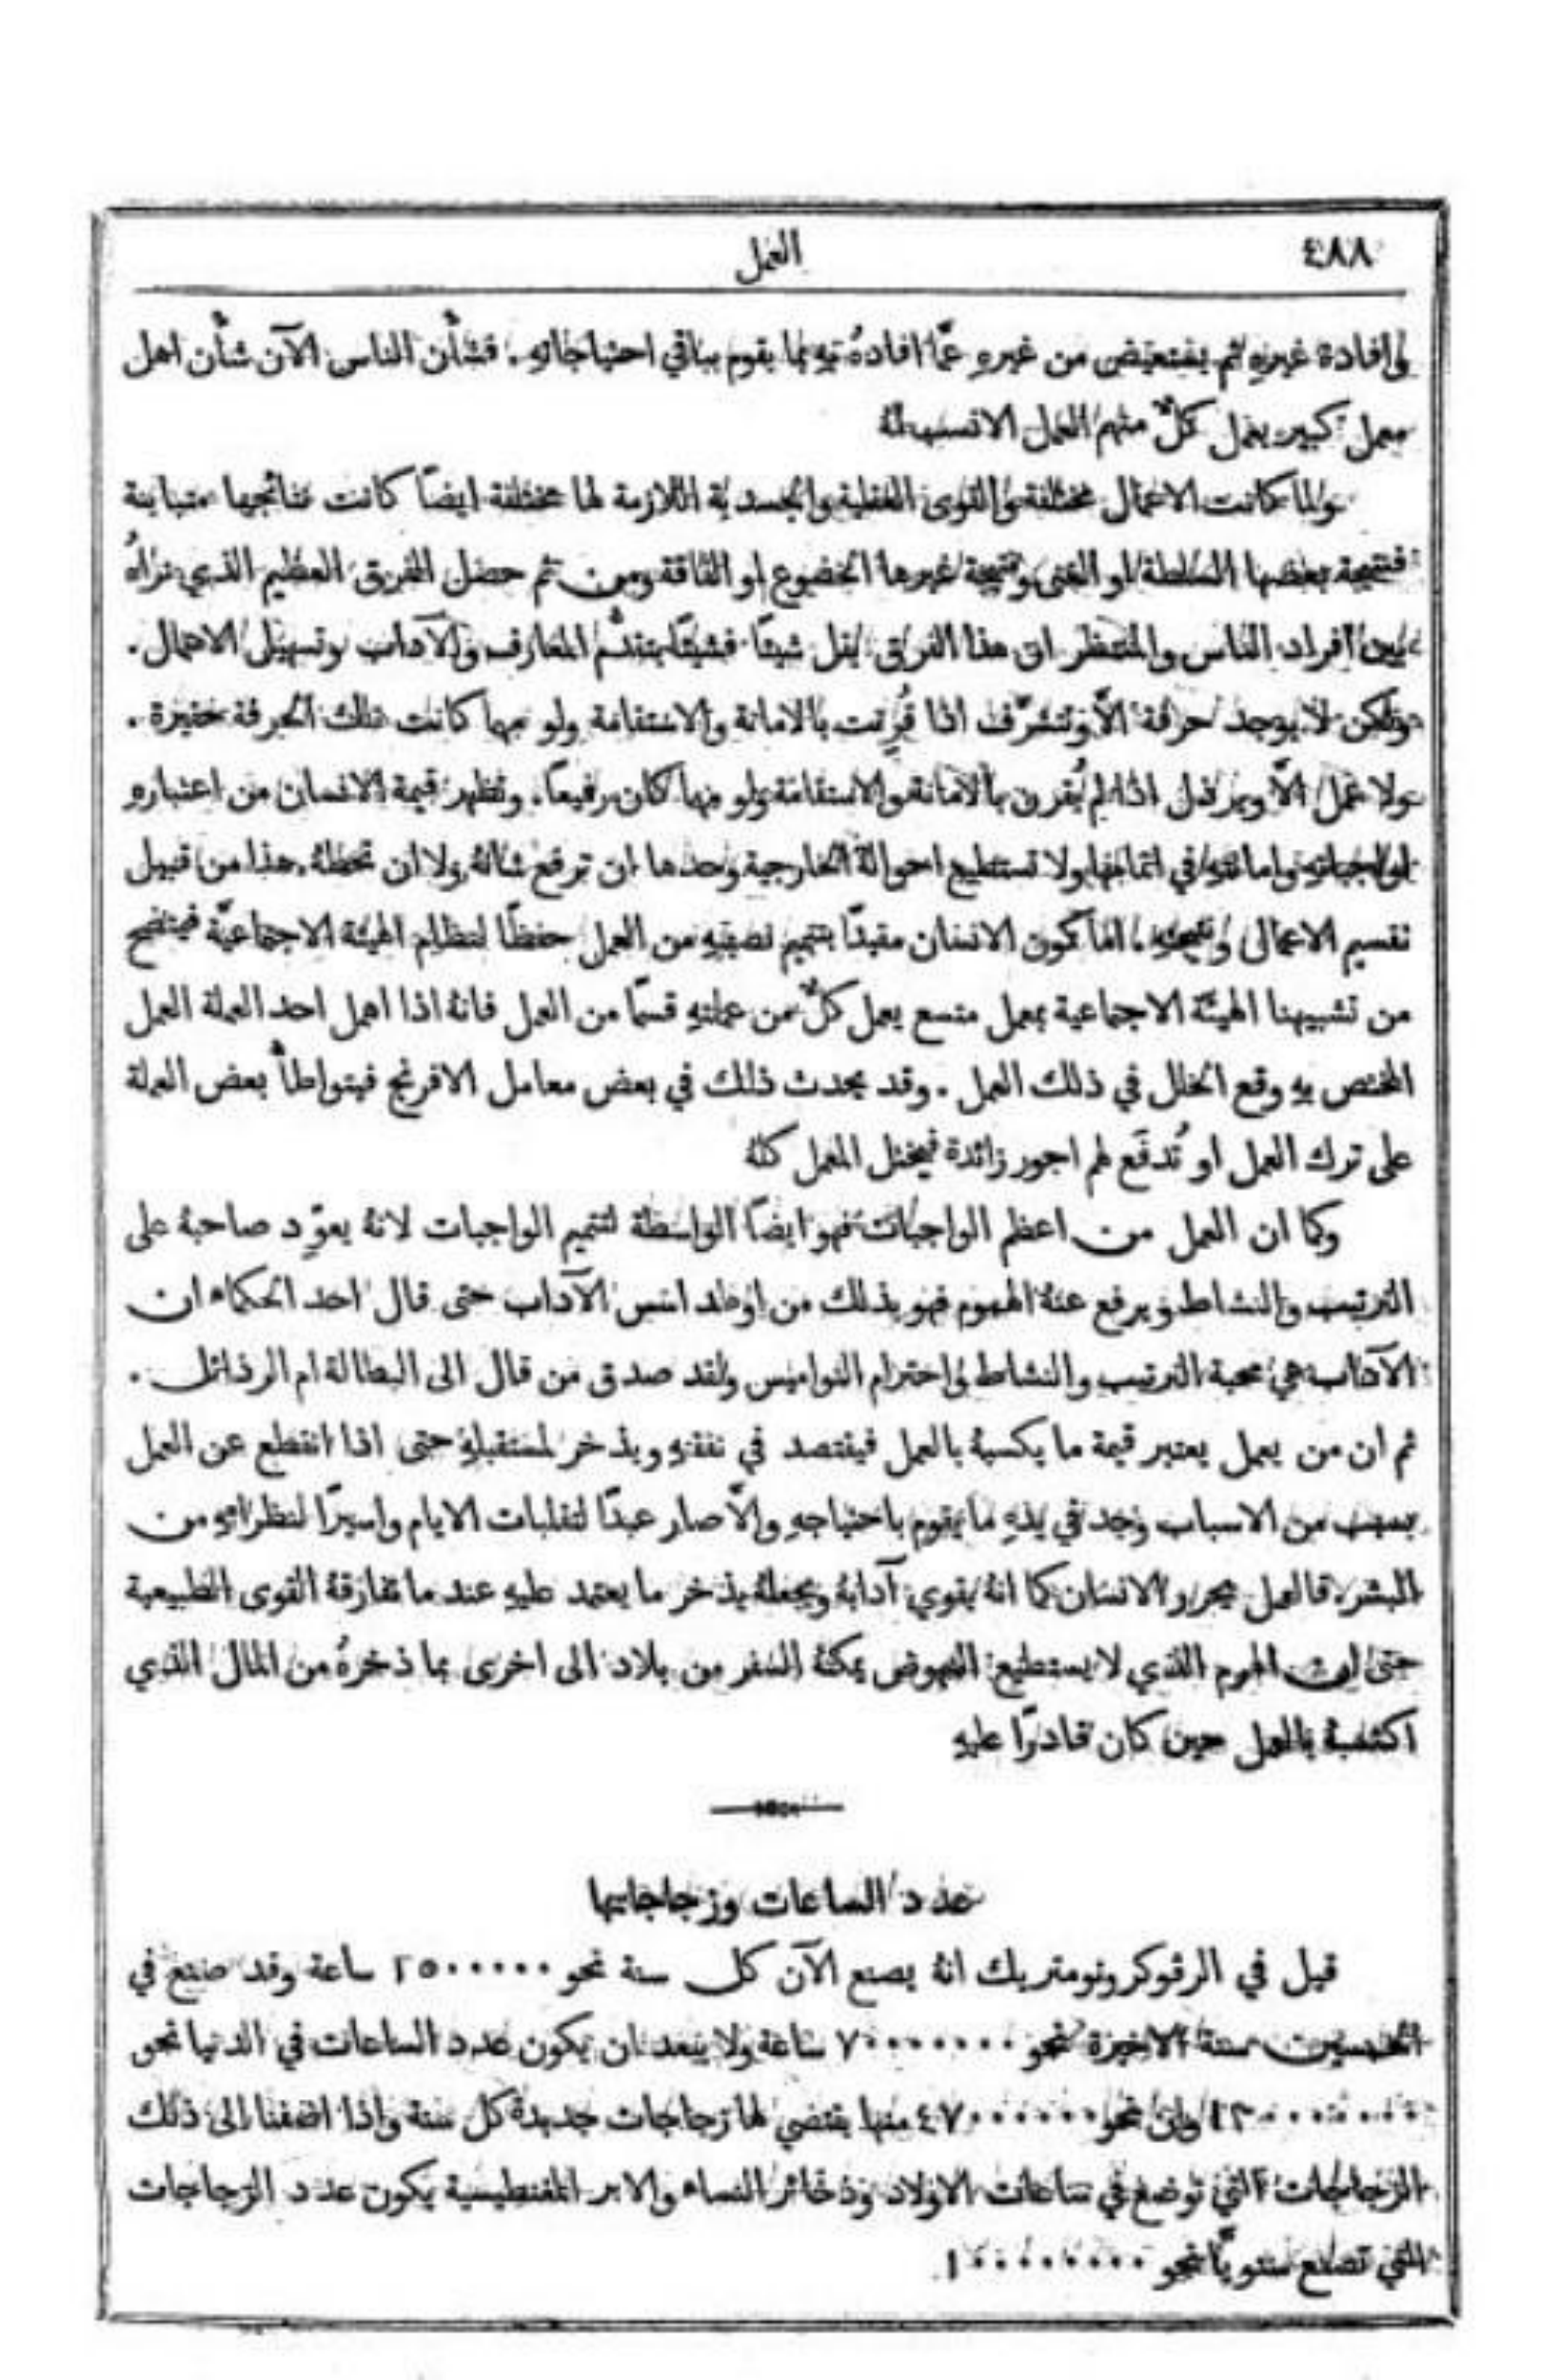 ٤٨٨
العمل
لى افادة غيره ثم يستعيض من غيرهِ عمَّا افادهُ بهِ بما يقوم بباقي احتياجاتهِ . فشأن الناس الآن شأن اهل
معمل كبير يعمل كلٌّ منهم العمل الانسب لهُ
ولما كانت الاعمال مختلفة والقوى العقلية والجسدية اللازمة لها مختلفة ايضاً كانت نتائجها متباينة
فنتيجة بعضها السلطة او الغنى ونتيجة غيرها الخضوع او الفاقة ومن ثم حصل الفرق العظيم الذي نراهُ
بين افراد الناس والمنتظر ان هذا الفرق يقل شيئاً فشيئاً بتقدُّم المعارف والآداب وتسهيل الاعمال .
ولكن لا يوجد حرفة الَّا وتتشرَّف اذا قُرِنت بالامانة والاستقامة ولو مهما كانت تلك الحرفة حقيرة .
ولا عمل الَّا ويرذل اذا لم يُقرن بالامانة والاستقامة ولو مهما كان رفيعاً . وتظهر قيمة الانسان من اعتبارهِ
لواجباتهِ وامانتهِ في اتمامها ولا تستطيع احوالهُ الخارجية وحدها ان ترفع شانهُ ولا ان تحطهُ . هذا من قبيل
تقسيم الاعمال ونتيجتهِ . اما كون الانسان مقيداً بتتميم نصيبهِ من العمل حفظاً لنظام الهيئة الاجتماعيَّة فيتضح
من تشبيهنا الهيئة الاجتماعية بمعمل متسع يعمل كلٌّ من عملتهِ قسماً من العمل فانهُ اذا اهمل احد العملة العمل
المختص بهِ وقع الخلل في ذلك العمل . وقد يحدث ذلك في بعض معامل الافرنج فيتواطأ بعض العملة
على ترك العمل او تُدفَع لهم اجور زائدة فيختل المعمل كلهُ
وكما ان العمل من اعظم الواجبات فهو ايضاً الواسطة لتتميم الواجبات لانهُ يعوّد صاحبهُ على
الترتيب والنشاط ويرفع عنهُ الهموم فهو بذلك من اوطد اسس الآداب حتى قال احد الحكماء ان
الآداب هي محبة الترتيب والنشاط واحترام النواميس ولقد صدق من قال الى البطالة ام الرذائل .
ثم ان من يعمل يعتبر قيمة ما يكسبهُ بالعمل فيقتصد في نفقتهِ ويذخر لمستقبلهِ حتى اذا انقطع عن العمل
بسبب من الاسباب وجد في يدهِ ما يقوم باحتياجهِ والَّا صار عبداً لتقلبات الايام واسيراً لنظرائهِ من
البشر . فالعمل يحرر الانسان كما انهُ يقوي آدابهُ ويجعلهُ يذخر ما يعتمد عليهِ عند ما تفارقهُ القوى الطبيعية
حتى ان الهرم الذي لا يستطيع النهوض يمكنهُ السفر من بلاد الى اخرى بما ذخرهُ من المال الذي
اكتسبهُ بالعمل حين كان قادراً عليهِ
عدد الساعات وزجاجاتها
قيل في الرڤوكرونومتريك انهُ يصنع الآن كل سنة نحو ٢٥٠٠٠٠٠ ساعة وقد صنع في
الخمسين سنة الاخيرة نحو ٧٠٠٠٠٠٠٠ ساعة ولا يبعد ان يكون عدد الساعات في الدنيا نحو
وان نحو ٤٧٠٠٠٠٠٠ منها يقتضي لها زجاجات جديدة كل سنة واذا اضفنا الى ذلك
الزجاجات التي توضع في ساعات الاولاد وذخائر النساء والابر المغنطيسية يكون عدد الزجاجات
التي تصنع سنويًّا نحو ١٠٠٠٠٠٠٠٠